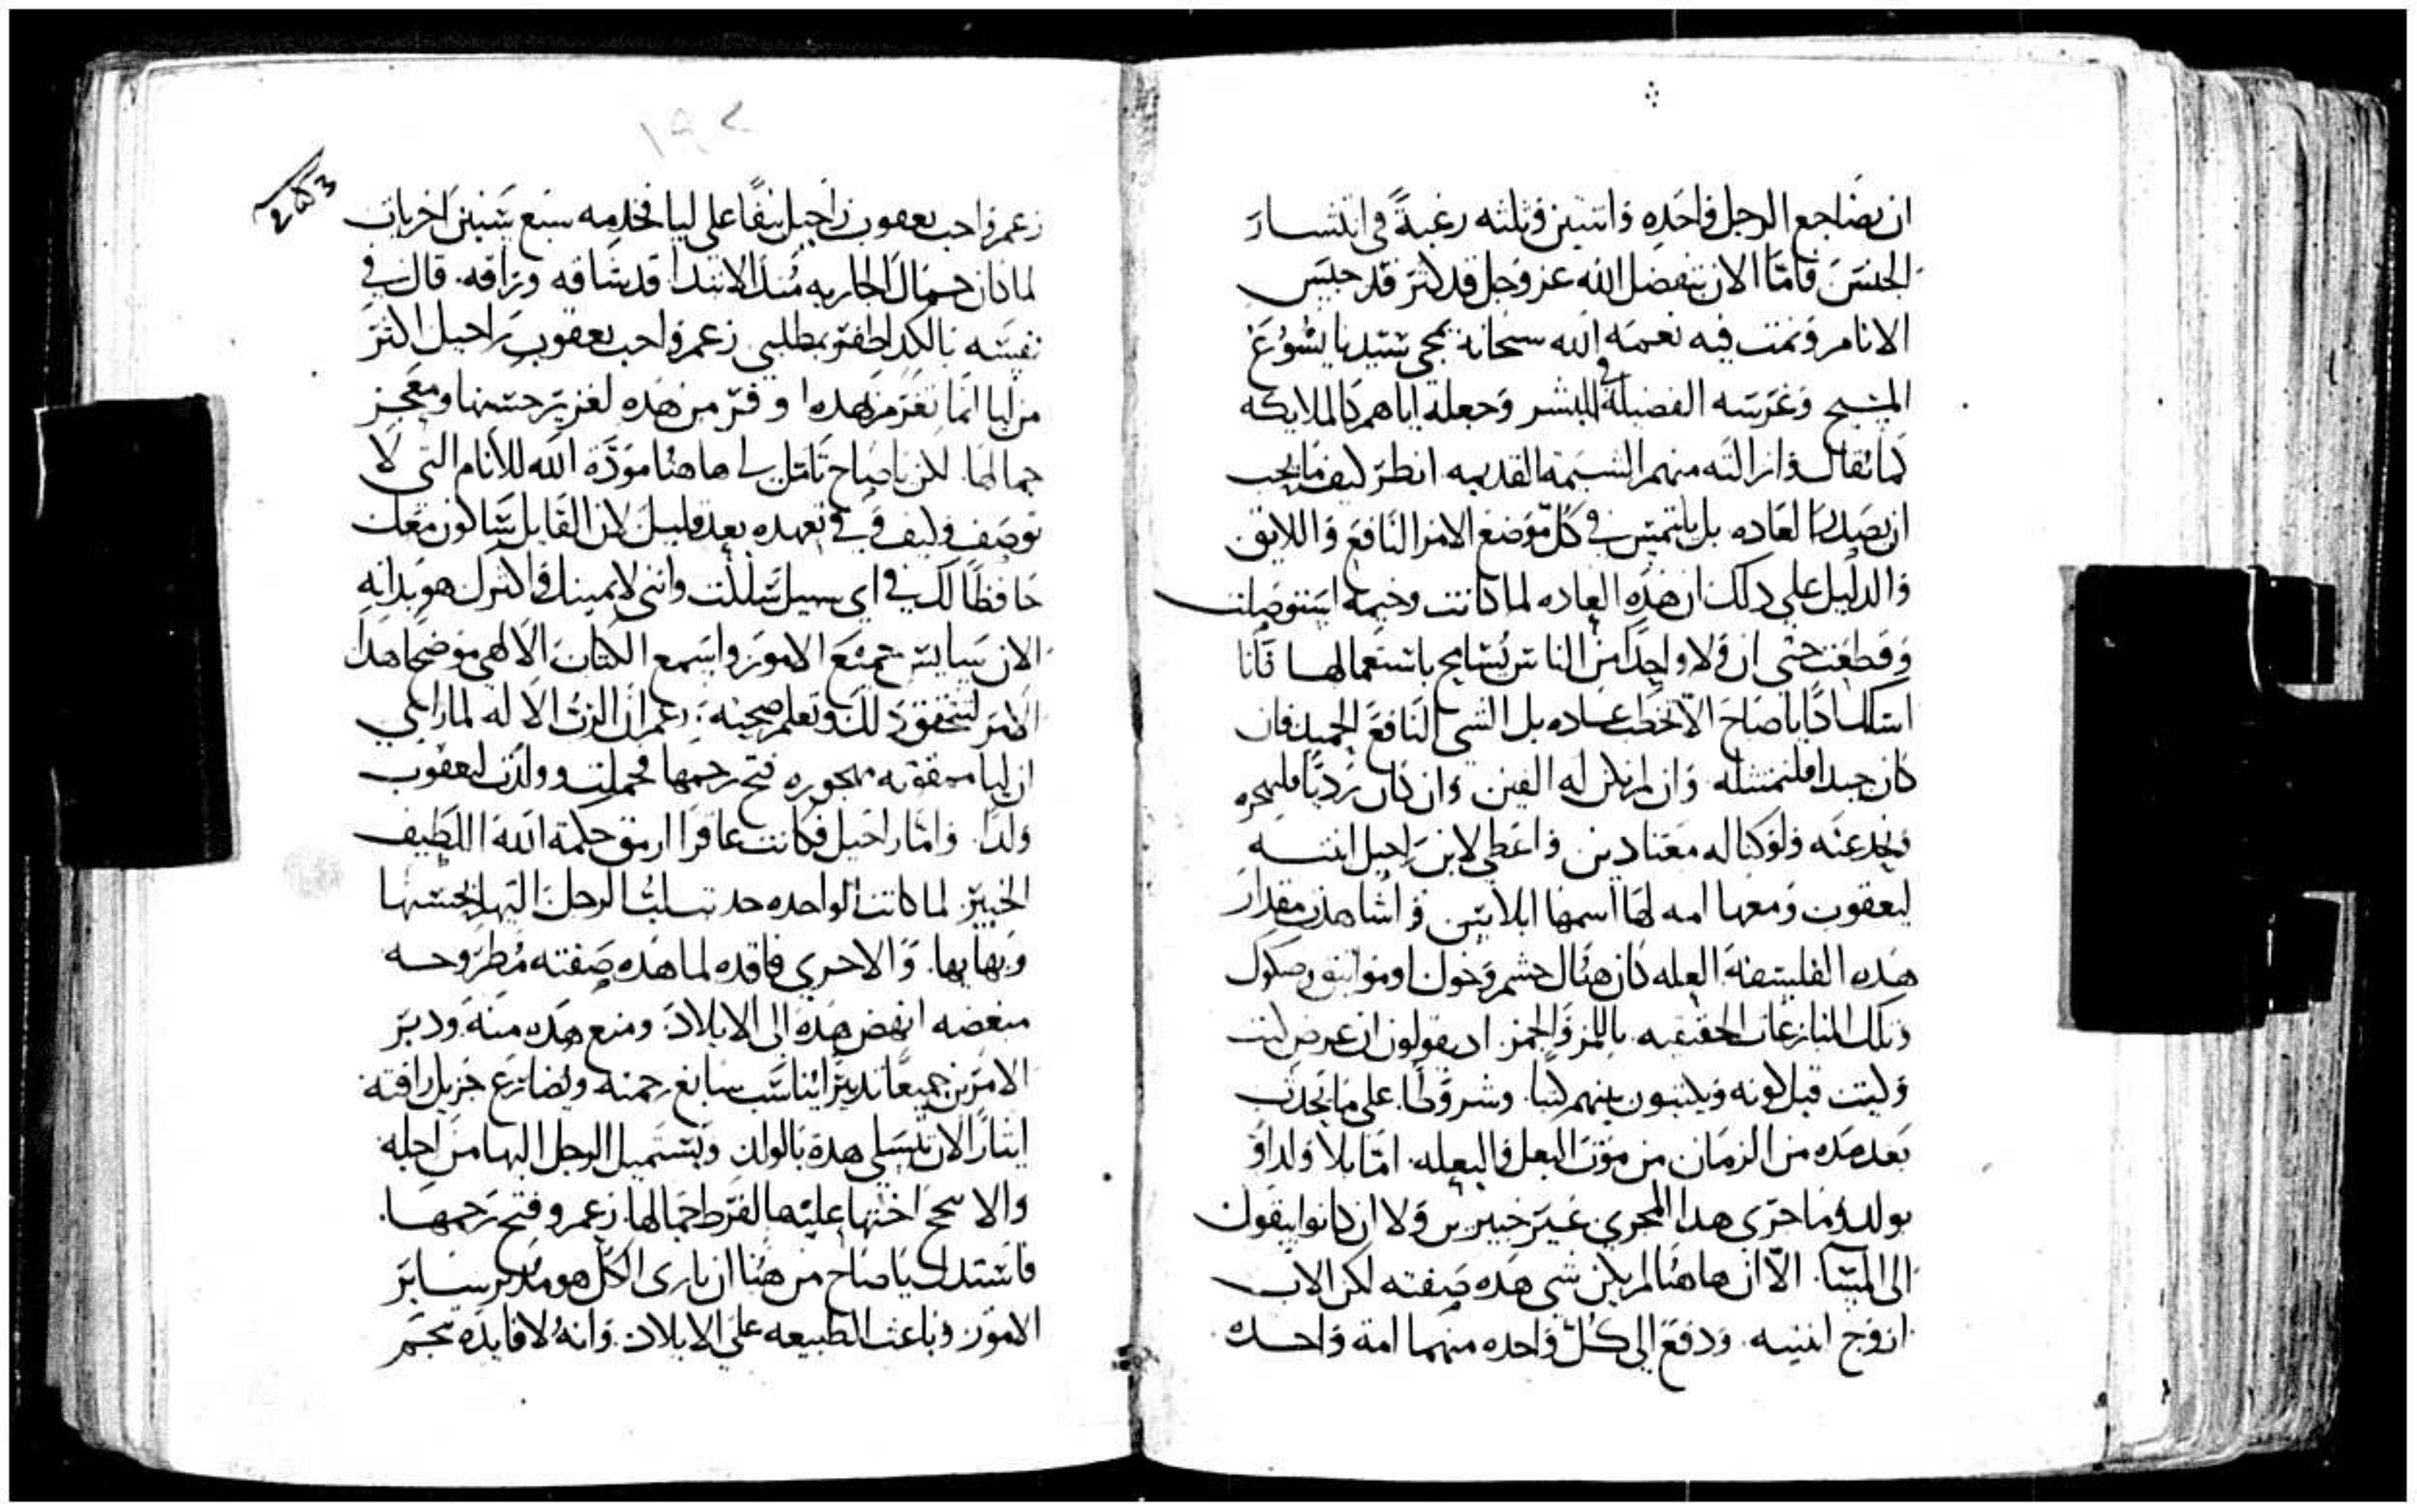 ان يضاجع الرجل واحده واتنتين وثلثه رغبةً في انتشار
الجنس فامّا الان بتفضل الله عز وجل قد كثر قد جنس
الانام ونمت فيه نعمه الله سبحانه بمجي سيدنا يسوع
المسيح وغرسه الفضيلة في البشر وجعله اياهم كالملايكه
كما يقال وازالته منهم الشيمة القديمه انظر كيف ما يجب
ان يصدر العاده بل يلتمس في كل موضع الامر النافع واللايق
والدليل على دلك ان هذه العاده لما كانت وخيمة استوصلت
وقطعت حتى ان ولا واحدًا من الناس يسامح باستعمالها فانا
اسلك ادًا ياصاح الّا تخطب عاده بل الشي النافع الجميد فان
كان جيدا فلنمتثله وان لم يكن له الفين وان كان رديًا فليهجره
ونحد عنه ولو كنا له معتادين واعطي لابن راحيل ابنته
ليعقوب ومعها امه لها اسمها ابلا يتين واشاهدت مقدار
هذه الفلسفة العله كان هناك حشم وخول او مواثيق وصكوك
وتلك المنازعات الحقيقيه باللمز والجمز اد يقولون ان عرض كيت
وكيت قبل كونه ويكتبون بينهم كتبا وشروطا على ما يحدث
بعد مده من الزمان من موت البعل والبعله امّا بلا ولد او
بولد وما جرى هذا المجرى غير خبيرين ولا ان كانوا يبقون
الى المسا الّا ان هاهنا لم يكن شي هذه صفته لكن الاب
ازوج ابنتيه ودفع الى كل واحده منهما امة واحده
١٩٢
زعم واحب يعقوب راحيل نيفًا على ليا فخدمه سبع سنين اخريات
لما كان جمال الجاريه مُند الابتدا قد شاقه وراقه قال في
نفسه بالكد اطفر بمطلبي زعم واحب يعقوب راحيل اكثر
من ليا انما نفر من هذه وفرّ من هذه لغزير حسنها ومعجز
جمالها لكن ياصاح تامّل لي هاهنا مودّة الله للانام التي لا
توصف وكيف وفي وعده بعد قليل لان القايل ساكون معك
حافظًا لك في اي سبيل سللت وانني لا يمينك واكترك هو بدانه
الان سايس جميع الامور واسمع الكتاب الالهي موضحًا هذا
الامر لتتحقق دلك وتعلم صحيحه زعم ان الرب الاله لما راى
ان ليا ممقوته مهجوره فتح رحمها فحملت وولدت ليعقوب
ولدًا وامّا راحيل فكانت عاقرا ارمق حكمة الله اللطيف
الخبير لما كانت الواحده جد تسلبُ الرجل اليها بحسنها
وبهايها والاخرى فاقده لما هذه صفته مُطرّوحه
مبغضه انهض هذه الى الايلاد ومنع هذه منه ودبر
الامرين جميعًا تدبيرًا يناسب سابغ رحمته ويضارع جزيل رافته
ايثارًا لان تتسلى هذه بالولد ويستميل الرجل اليها من اجله
والا سحج اختها عليها لفرط جمالها زعم وفتح رحمها
فاستدل ياصاح من هنا ان بارى الكل هو مدبر ساير
الامور وباعث الطبيعه على الايلاد وانه لا فايده تنجم